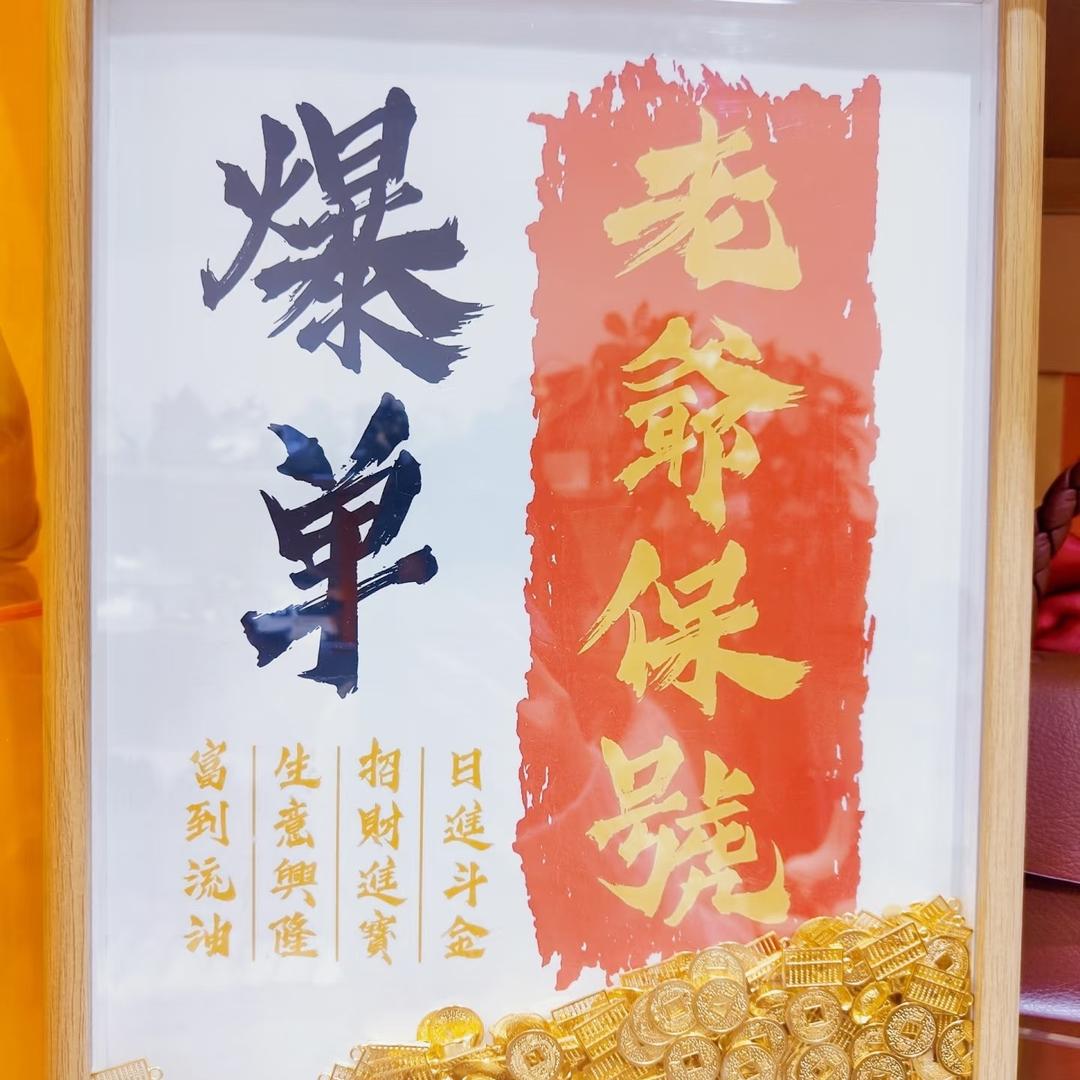 老爺保號
爆单
日進斗金
招財進寶
生意興隆
富到流油